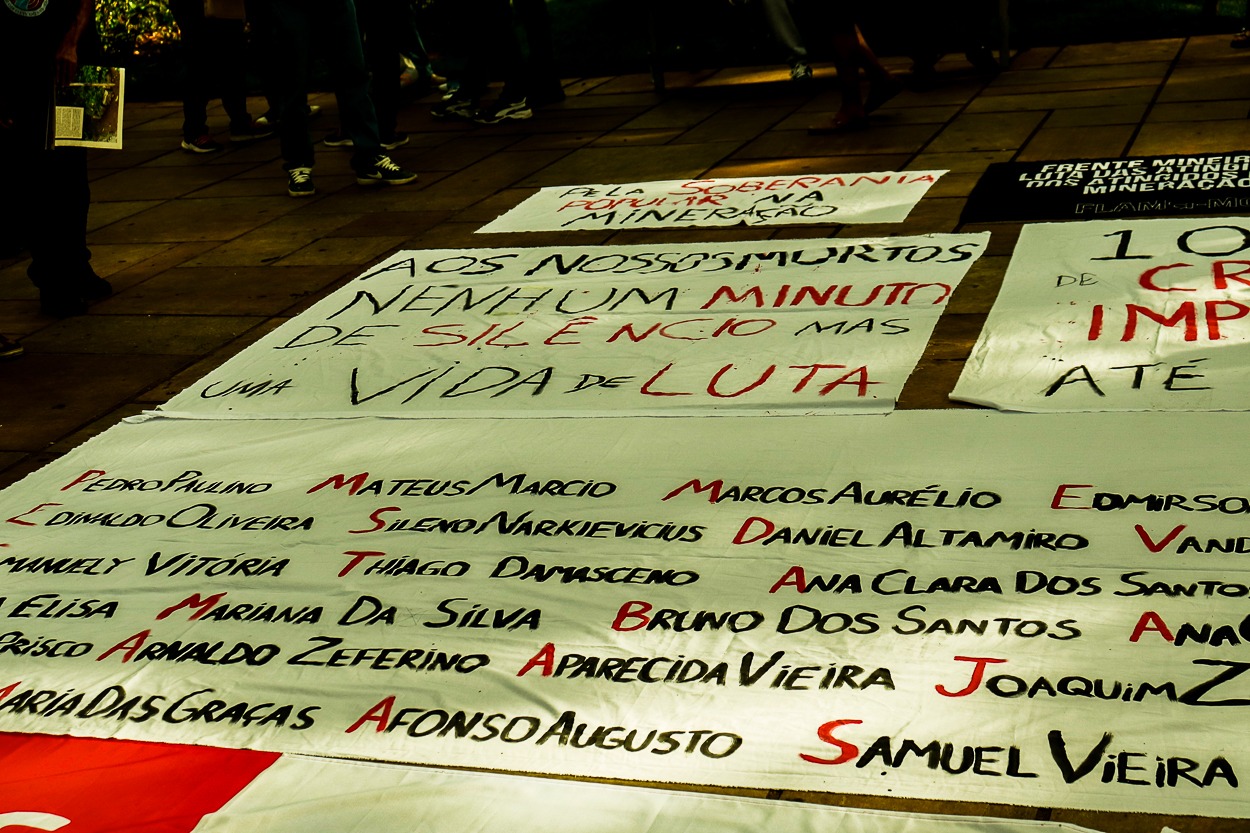 PELA SOBERANIA
POPULAR NA
MINERAÇÃO
FRENTE MINEIR
LUTA DAS ATINGI
DOS ATINGIDOS
MINERAÇÃO
AOS NOSSOS MORTOS
NENHUM MINUTO
DE SILÊNCIO MAS
UMA VIDA DE LUTA
10
DE CR
IMP
ATÉ
PEDRO PAULINO MATEUS MARCIO MARCOS AURÉLIO EDMIRSO
EDINALDO OLIVEIRA SILENO NARKIEVICIUS DANIEL ALTAMIRO VAND
MANUELY VITÓRIA THIAGO DAMASCENO ANA CLARA DOS SANTOS
ELISA MARIANA DA SILVA BRUNO DOS SANTOS ANA
PRISCO ARNALDO ZEFERINO APARECIDA VIEIRA JOAQUIM Z
MARIA DAS GRAÇAS AFONSO AUGUSTO SAMUEL VIEIRA